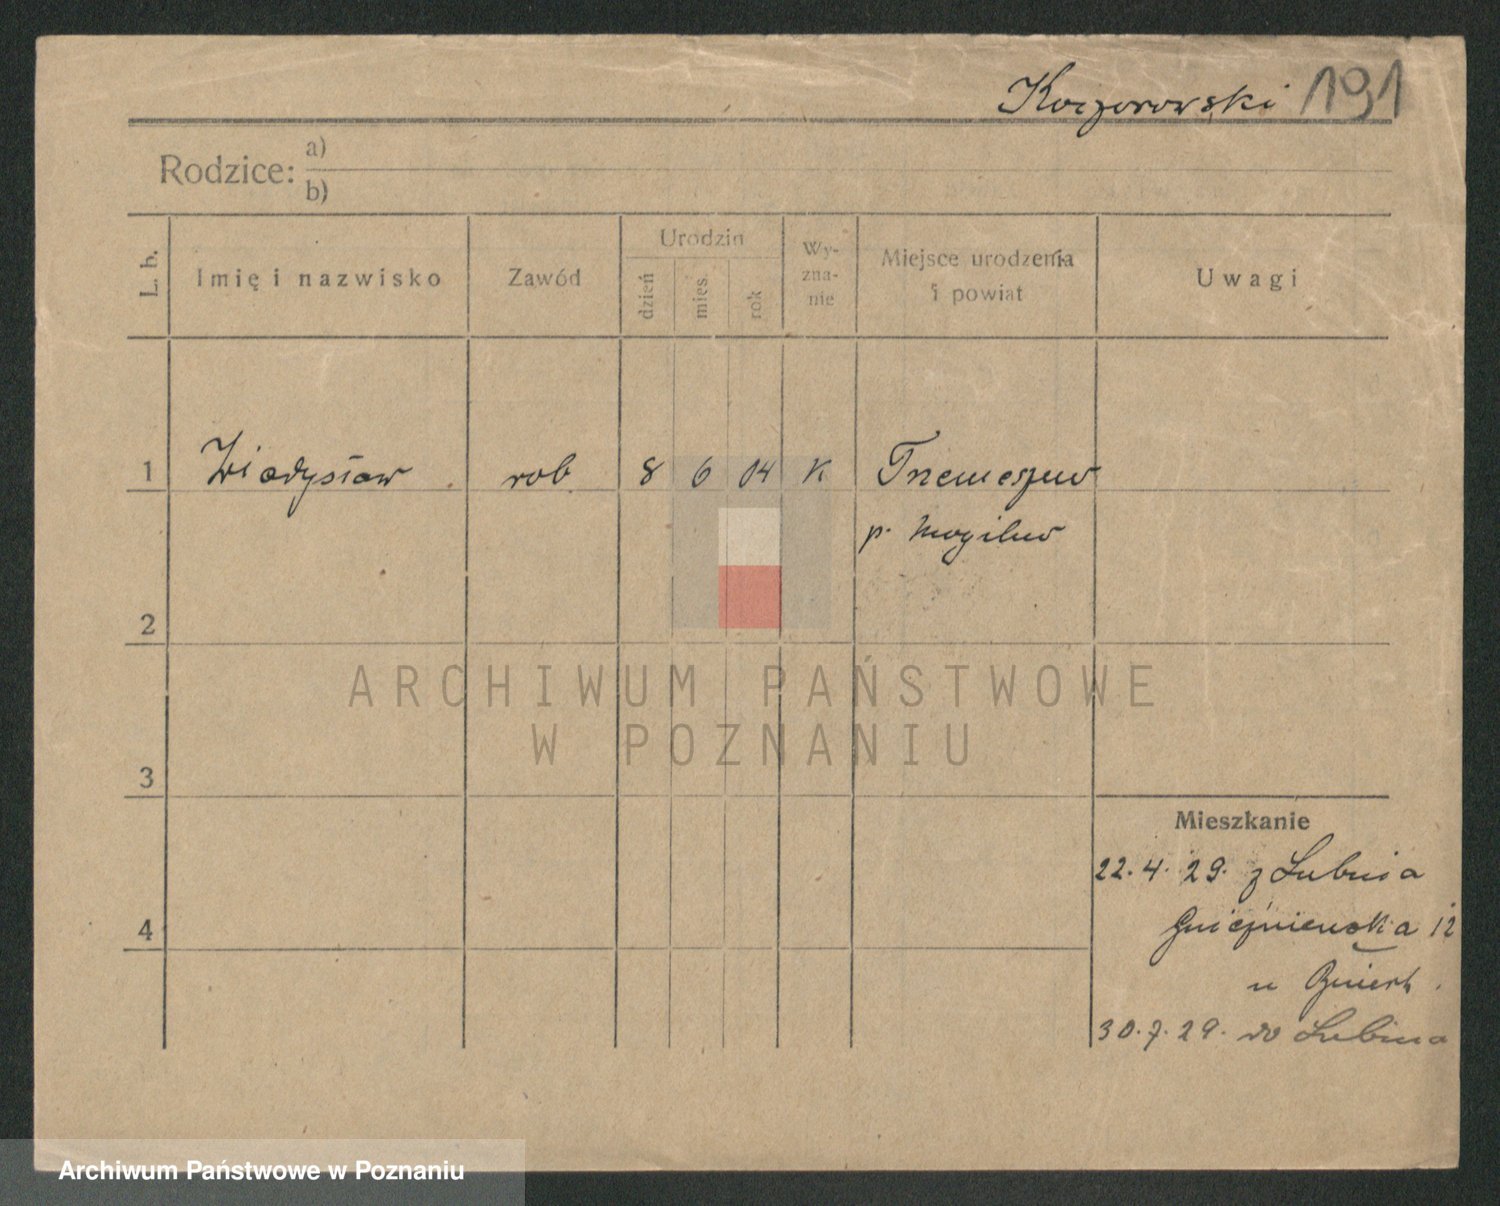 Koczorowski 191
Rodzice: a)
b)
L. b.
Imię i nazwisko
Zawód
Urodzin
dzień
mies.
rok
Wy-
zna-
nie
Miejsce urodzenia
i powiat
Uwagi
1 Władysław rob 8 6 04 K Trzemeszno
p. Mogilno
2
3
4
Mieszkanie
22.4.29. z Lubnia
Gnieźnieńska 12
u
30.7.29. do Lubinia
ARCHIWUM PAŃSTWOWE
W POZNANIU
Archiwum Państwowe w Poznaniu